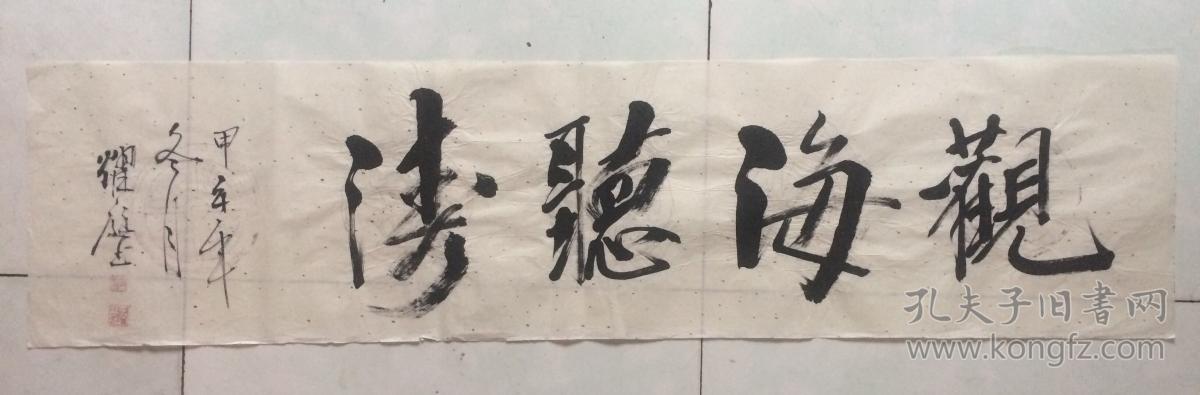 觀海聽濤
甲午年
冬月
耀庭
孔夫子旧書网
www.kongfz.com